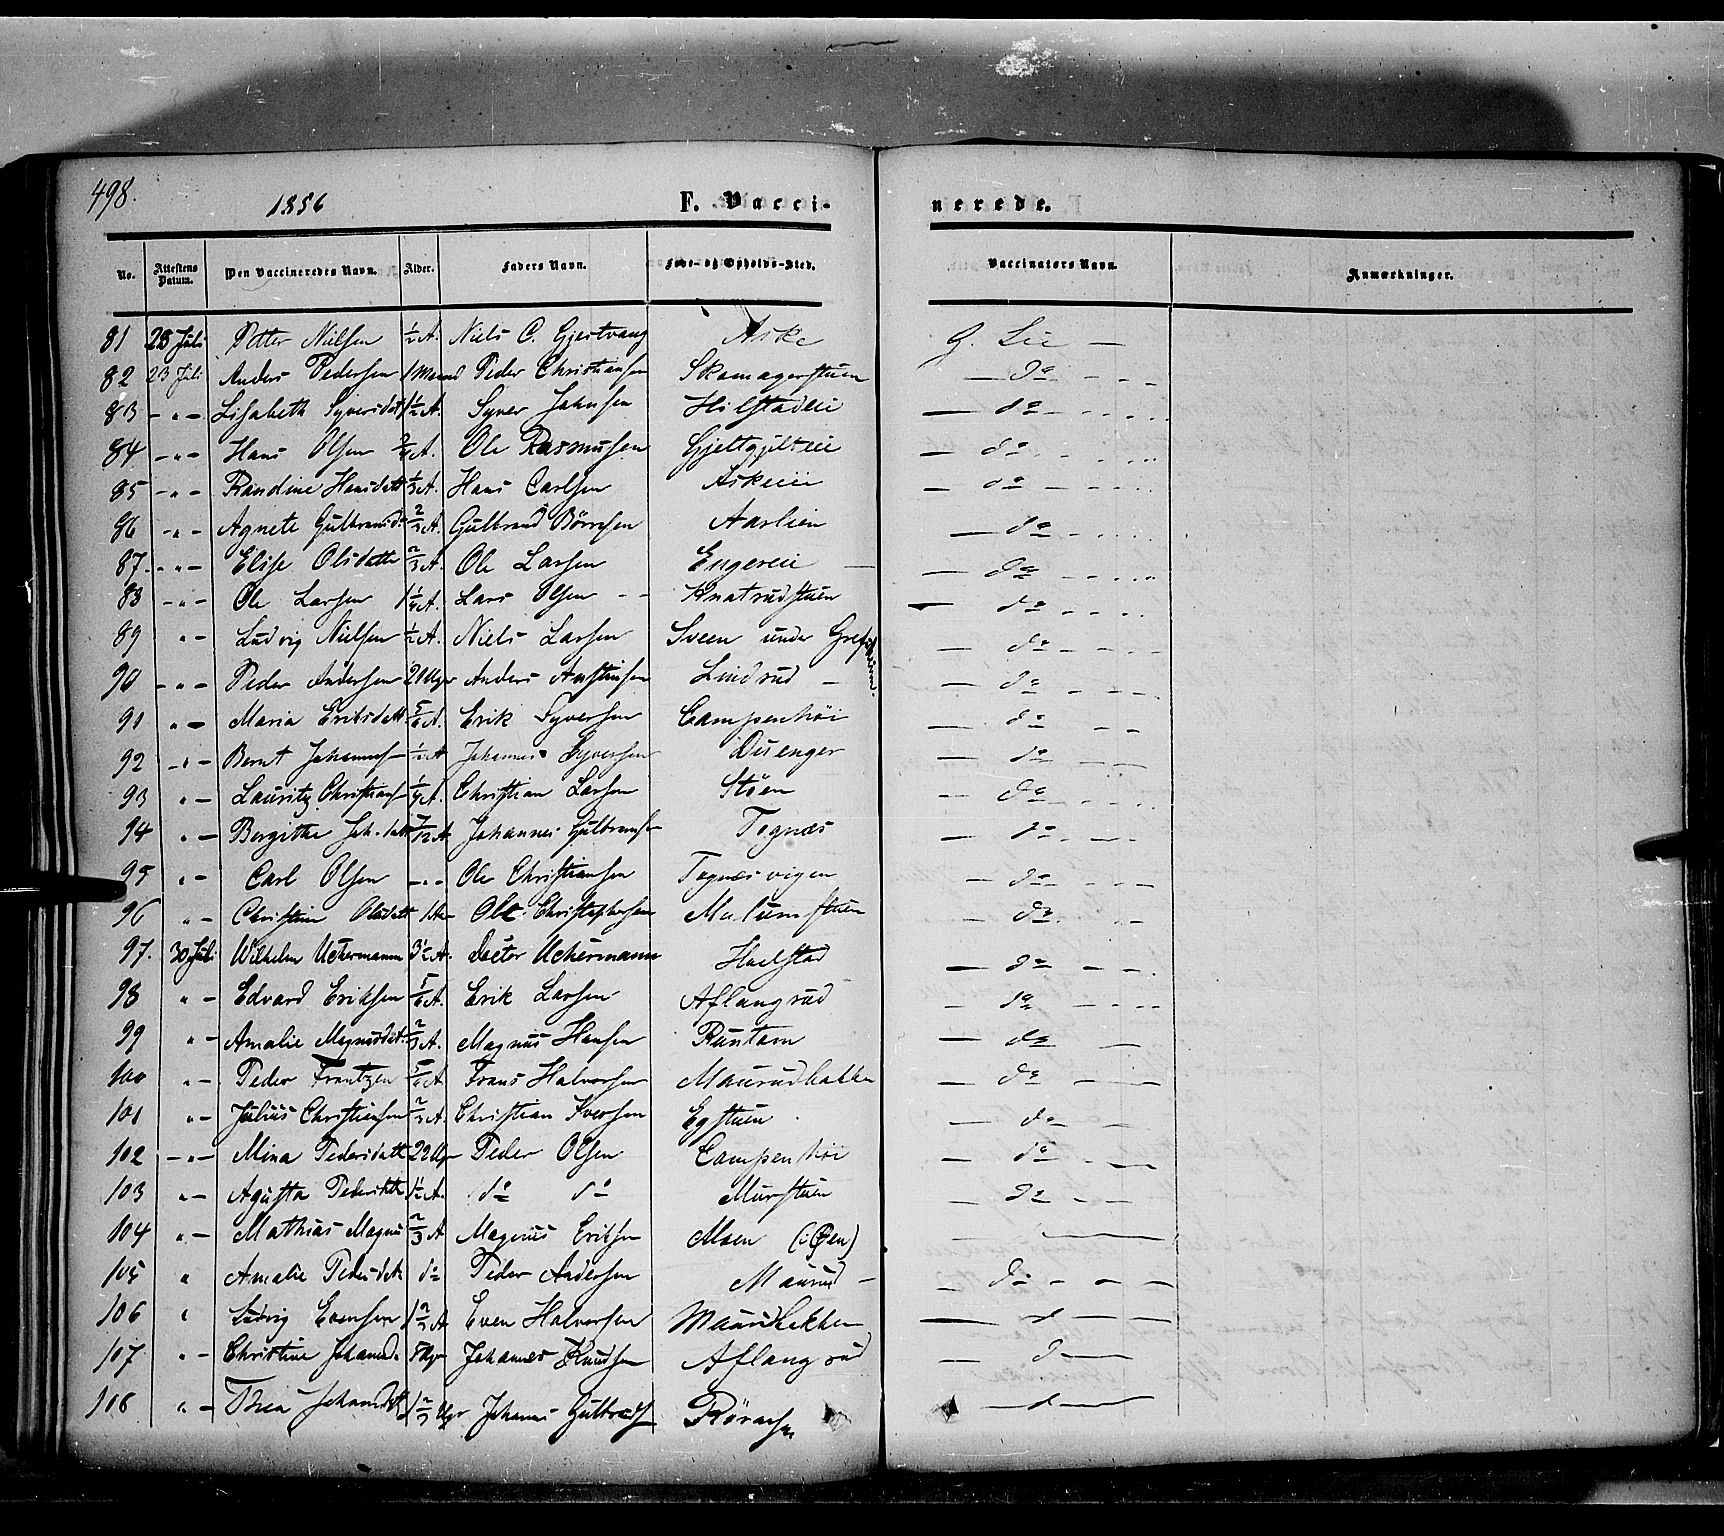 498.
1856
F. Vacci-
nerede.
No. Attestens Datum. Den Vaccineredes Navn. Alder. Faders Navn. Føde- og Opholds-Sted. Vaccinators Navn. Anmærkninger.
81 23 Juli Petter Nielsen 1/2 A. Niels C. Gjestvang Aske G. Lie —
82 23 Juli Anders Pedersen 1 Maaned Peder Christiansen Skomagerstuen — do
83 — " — Lisabeth Syversdat 1 1/2 A. Syver Johnsen Hilstadeie — do
84 — " — Hans Olsen 3/4 A. Ole Rasmussen Gjeltqilteie — do
85 — " — Randine Hansdatt 1/3 A. Hans Carlsen Askeeie — do
86 — " — Agnete Gulbransd. 2/3 A. Gulbrand Børresen Aarlien — do
87. — " — Elise Olsdatte 2/3 A. Ole Larsen Engereie — — do
88 — " — Ole Larsen 1 1/4 A. Lars Olsen Knatrudstuen — do
89 " — Ludvig Nielsen 1/2 A. Niels Larsen Sveen under Grefsheim. — do
90 — " — Peder Andersen 21 Uger Anders Anstensen Lindrud — — do
91 " — Maria Eriksdatt 5/6 A. Erik Syversen Campenhöi — do
92 — " — Bernt Johannes 1/2 A Johannes Syversen Duenger — do
93 " — Lauritz Christians 1/4 A. Christian Larsen Stöen — do
94 " — Bergithe Joh.datt 7/12 A Johannes Gulbransen Tognæs — do
95 " — Carl Olsen — " — Ole Christiansen Tognæsvigen — do
96 " — Christine Olsdatt 1 Aar Ole Christophersen Malumstuen — do
97. 30 Juli Wilhelm Uchermann 3 1/2 A. Doctor Uchermann Hoelstad — do
98 " — Edvard Eriksen 5/6 A. Erik Larsen Aflangrud — do
99 " — Amalie Magnusdat. 2/3 A. Magnus Hansen Runtom — do
100 " — Peder Frantzen 5/6 A Frans Halvorsen Maurudbakken — do
101 " — Julius Christiansen 2/3 A. Christian Iversen Egstuen — do
102 — " — Mina Pedersdatt 22 Uger Peder Olsen Campenhöi — do
103 " — Agusta Pedersdtt 1 1/2 A. do do Murstuen — do
104 " — Mathias Magnus 2/3 A Magnus Eriksen Moen (i Øen) —
105 " Amalie Pedersdatt do Peder Andersen Maurud — do
106 " Ludvig Evensen 1 2/3 A Even Halvorsen Maurudbakken — d —
107. " — Christine Johansd. 8 Uger Johannes Knudsen Aflangrud — d —
108 " — Thea Johansdtt 1 2/3 Johannes Gulbrands — d —